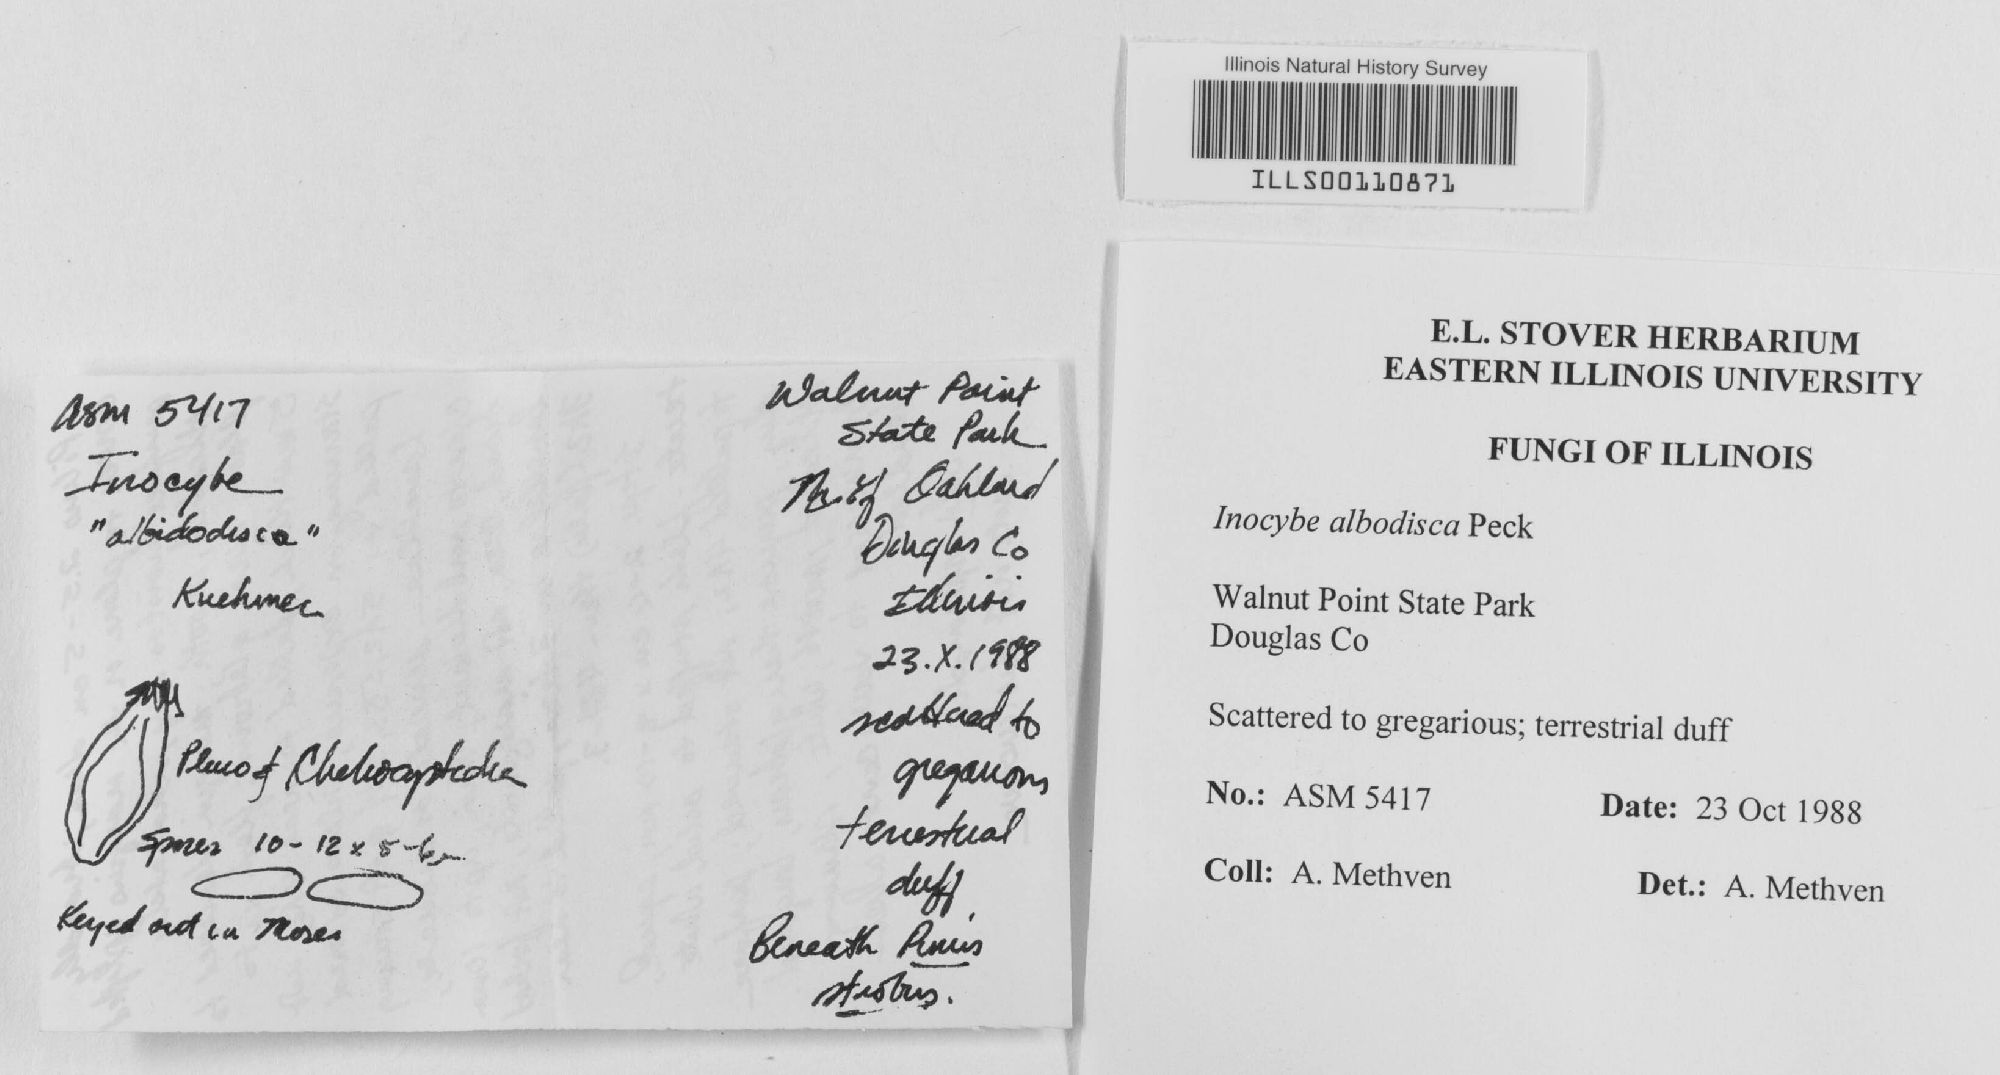 Illinois Natural History Survey
ILLS00110871
E.L. STOVER HERBARIUM
EASTERN ILLINOIS UNIVERSITY
FUNGI OF ILLINOIS
Inocybe albodisca Peck
Walnut Point State Park
Douglas Co
Scattered to gregarious; terrestrial duff
No.: ASM 5417 Date: 23 Oct 1988
Coll: A. Methven Det.: A. Methven
ASM 5417
Inocybe
"albidodisca"
Kuehner
Pleuro & Cheilocystidia
Spores 10-12 x 5-6
Keyed out in Moser
Walnut Point
State Park
Oakland
Douglas Co
Illinois
23.X.1988
scattered to
gregarious
terrestrial
duff,
Beneath Pinus
strobus.